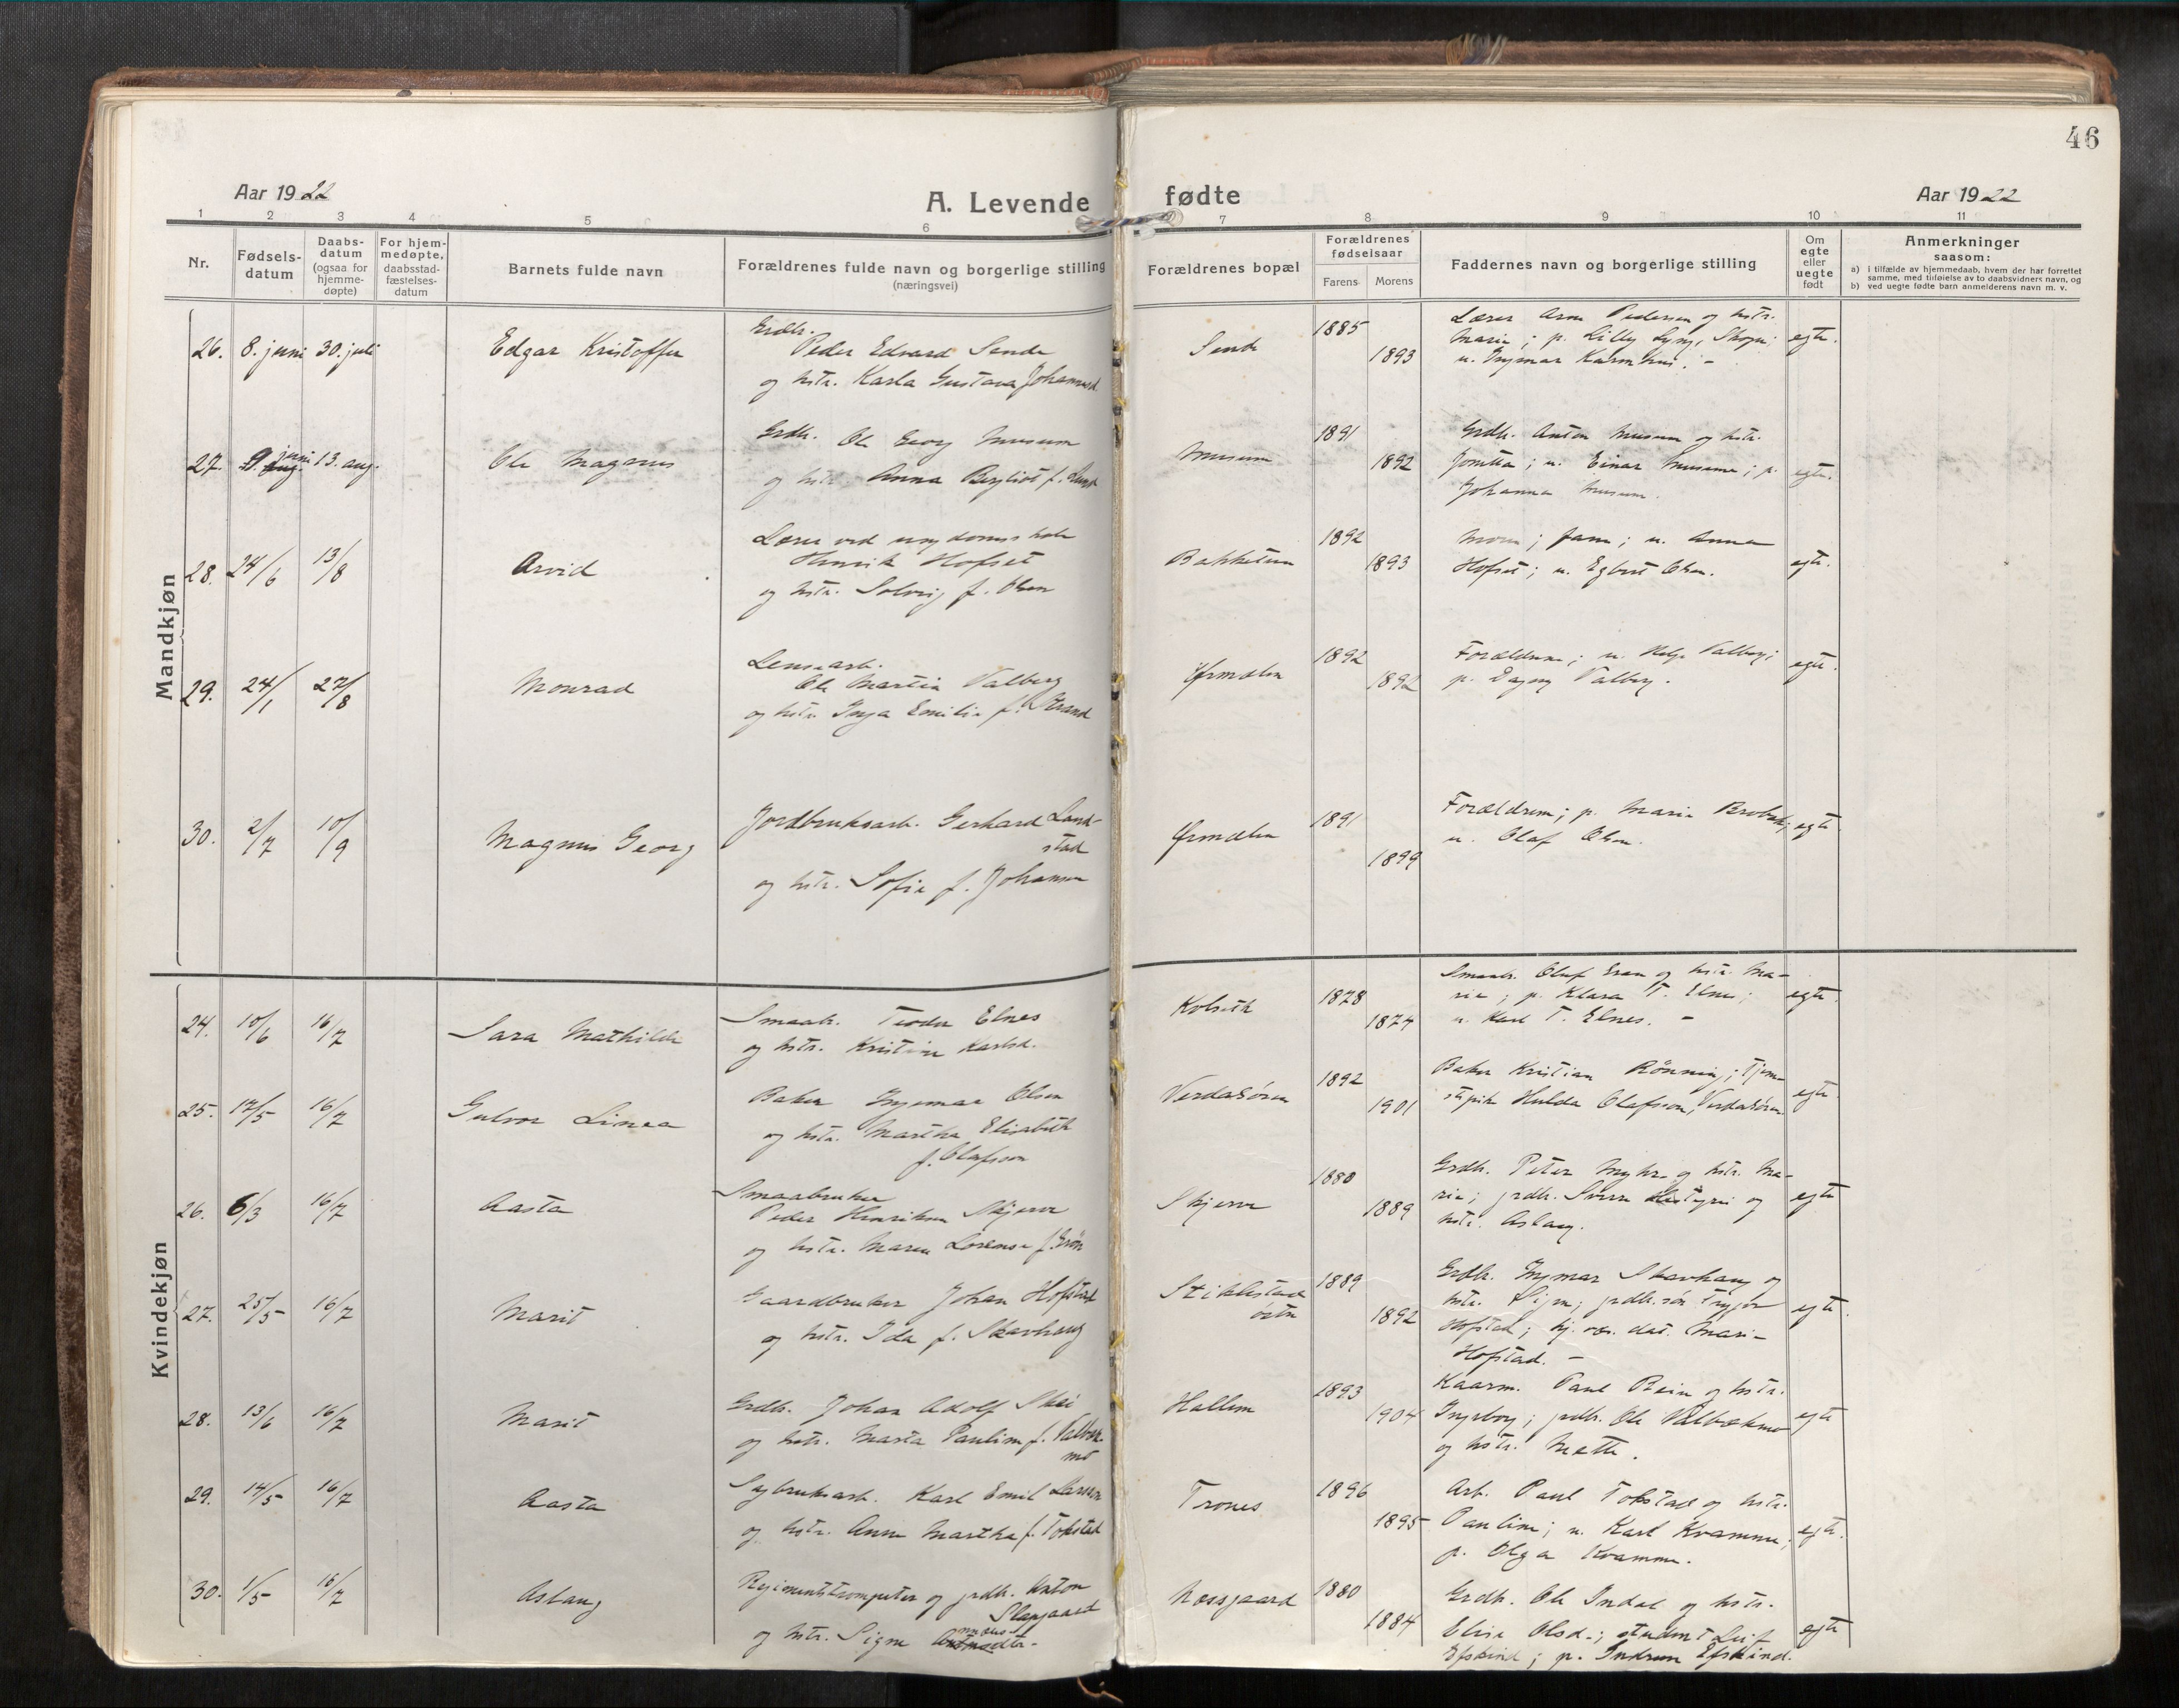 46
Aar 1922
A. Levende fødte
Aar 1922
1 2 3 4 5 6 7 8 9 10 11
Nr.
Fødsels-
datum
Daabs-
datum
(ogsaa for
hjemme-
døpte)
For hjem-
medøpte,
daabsstad-
fæstelses-
datum
Barnets fulde navn
Forældrenes fulde navn og borgerlige stilling
(næringsvei)
Forældrenes bopæl
Forældrenes
fødselsaar
Farens
Morens
Faddernes navn og borgerlige stilling
Om
egte
eller
uegte
født
Anmerkninger
saasom:
a) i tilfælde av hjemmedaab, hvem der har forrettet
samme, med tilføielse av to daabsvidners navn, og
b) ved uegte fødte barn anmelderens navn m. v.
Mandkjøn
26. 8. juni 30. juli
Edgar Kristoffer
Grdbr.
Peder Edvard Sende
og hstr. Karla Gustava Johannesd.
Sende
1885
1893
Lærer Arne Pedersen og hstr.
Marie; p. Lilly Lyng, Skogn;
u. Ingmar Karmhus. -
egte.
27. 9. juni 13. aug.
Ole Magnus
Grdbr. Ole Georg Musum
og hstr. Anna Bergliot f. Lund
Musum
1891
1892
Grdbr. Anton Musum og hstr.
Jonetta; u. Einar Musum; p.
Johanna Musum.
egte.
28. 24/6 13/8
Arvid
Lærer ved ungdomsskole
Henrik Hofset
og hstr. Solveig f. Olsen
Bakketun
1892
1893
Moren; faren; u. Anna
Hofset; u. Egbert Olsen.
egte.
29. 24/1 27/8
Monrad
Lensearb.
Ole Martin Valberg
og hstr. Inga Emilie f. Strand
Ørmelen
1892
1892
Forældrene; u. Helge Valberg;
p. Dagny Valberg.
egte.
30. 2/7 10/9
Magnus Georg
Jordbruksarb. Gerhard Land-
stad
og hstr. Sofie f. Johansen
Ørmelen
1891
1899
Forældrene; p. Marie
u. Olaf Olsen.
egte
Kvindekjøn
24. 10/6 16/7
Sara Mathilde
Smaabr. Teodor Elnes
og hstr. Kristine Karlsd.
Kolseth
1878
1874
Smaabr. Oluf og hstr. Ma-
rie; p. Klara T. Elnes;
u. Karl T. Elnes. -
egte.
25. 17/5 16/7
Gulvor Linea
Baker Ingemar Olsen
og hstr. Martha Elisabeth
f. Olafsson
Verdalsøren
1892
1901
Baker Kristian Rönning; tjene-
stepike Hulda Olafsson, Verdalsøren
egte.
26. 6/3 16/7
Aasta
Smaabruker
Peder Henriksen Skjerve
og hstr. Maren Lorense f. Grøn
Skjerve
1880
1889
Grdbr. Peter Myhr og hstr. Ma-
rie; grdbr. Sverre og
hstr. Aslaug.
egte
27. 25/5 16/7
Marit
Gaardbruker Johan Hofstad
og hstr. Ida f. Skavhaug
Stiklestad
østre
1889
1892
Grdbr. Ingmar Skavhaug og
hstr. Signe; grdbr.søn Trygve
Hofstad; hj. vær. dat. Marie
Hofstad. -
egte.
28. 13/6 16/7
Marit
Grdbr. Johan Adolf Skei
og hstr. Marta Pauline f. Valbæk-
mo
Hallem
1893
1904
Kaarm. Paul Rein og hstr.
Ingeborg; grdbr. Ole Valbækmo
og hstr. Mette.
egte
29. 14/5 16/7
Aasta
Sagbruksarb. Karl Emil Larsson
og hstr. Anne Martha f. Tokstad
Trones
1896
1895
Arb. Paul Tokstad og hstr.
Pauline; u. Karl Kvamme;
p. Olga Kvamme.
egte.
30. 1/5 16/7
Aslaug
Regimentstrompeter og grdbr. Anton
Slapgaard
og hstr. Signe
Næssgaard
1880
1884
Grdbr. Ole Indal og hstr.
Elise Olsd.; student Leif
Efskind; p. Efskind.
egte